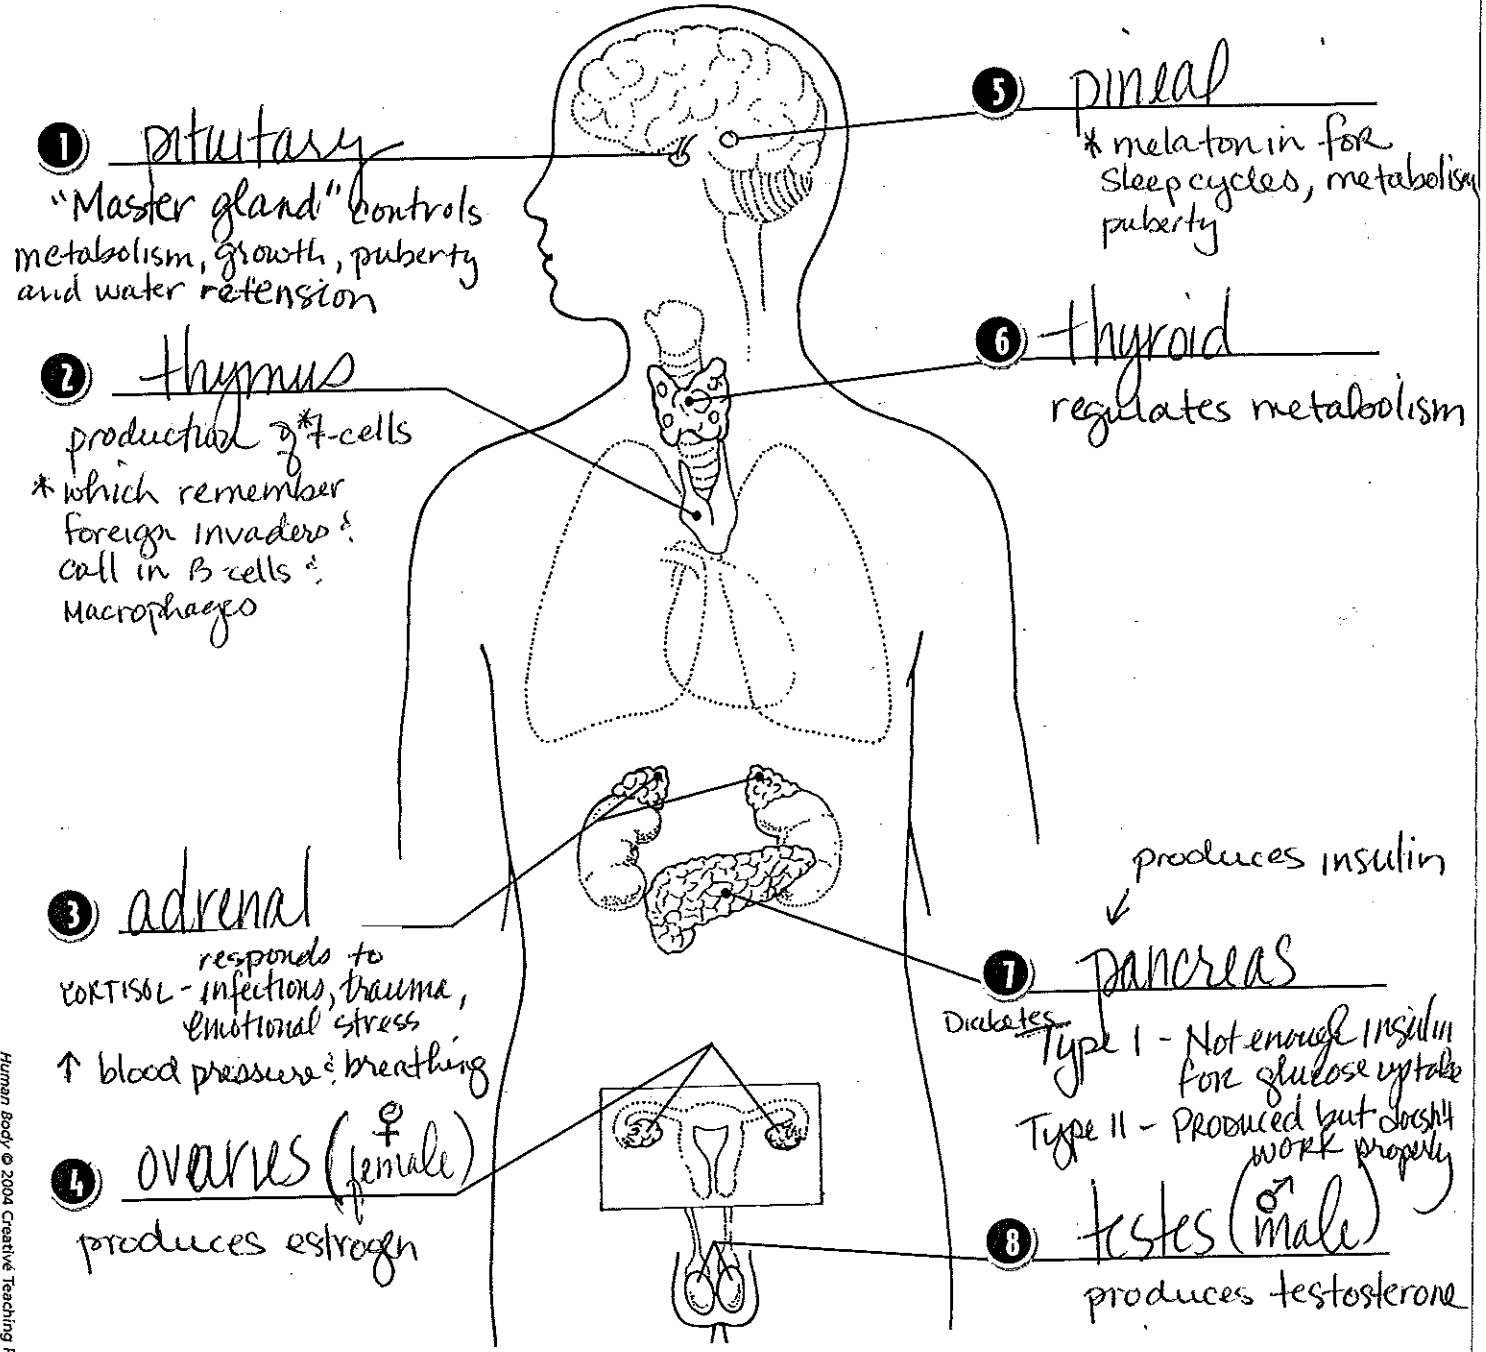 1 pituitary
"Master gland" controls
metabolism, growth, puberty
and water retension
2 thymus
production of *T-cells
* which remember
foreign invaders &
call in B-cells &
Macrophages
3 adrenal
responds to
CORTISOL - infections, trauma,
emotional stress
↑ blood pressure & breathing
4 ovaries (♀ female)
produces estrogen
5 pineal
* melatonin for
sleep cycles, metabolism
puberty
6 thyroid
regulates metabolism
produces insulin
7 pancreas
Diabetes
Type I - Not enough insulin
for glucose uptake
Type II - Produced but doesn't
work properly
8 testes (♂ male)
produces testosterone
Human Body © 2004 Creative Teaching